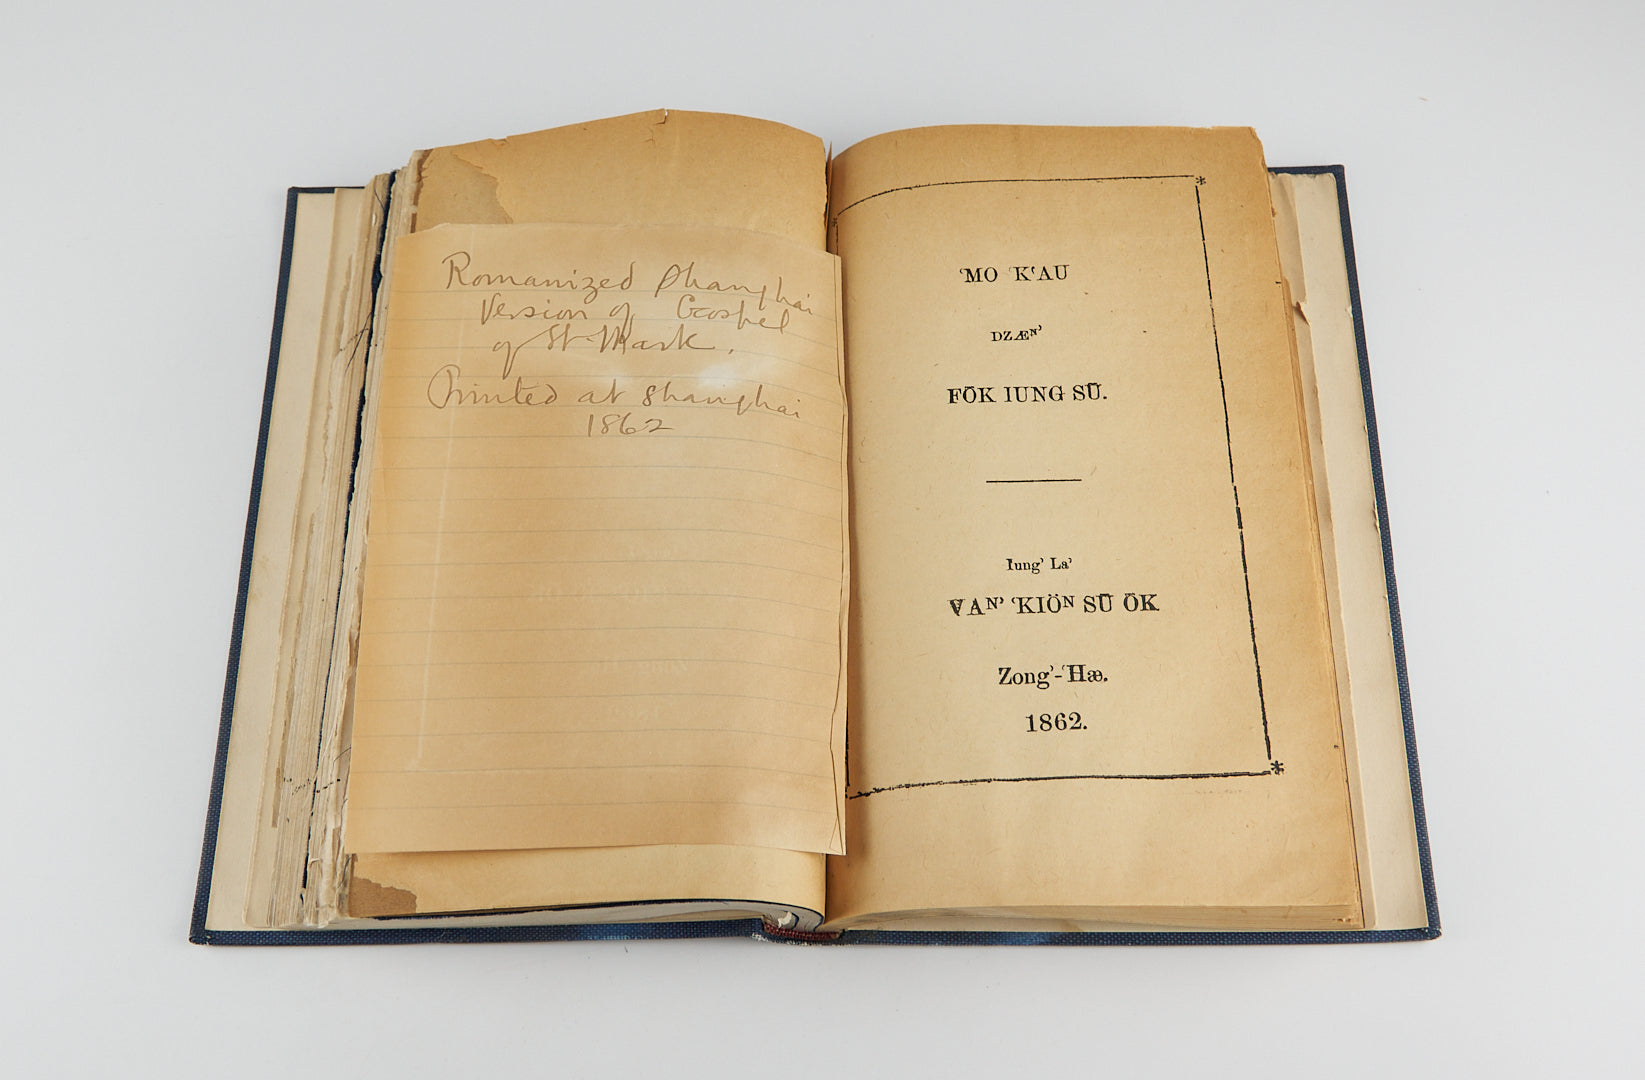 Romanized Shanghai
Version of Gospel
of St. Mark.
Printed at Shanghai
1862
ʻMO ʻKʻAU
DZÆᴺʼ
FŌK IUNG SŪ.
Iung’ La’
VAᴺ’ ʻKIÖᴺ SŪ ŌK
Zong’-ʻHæ.
1862.